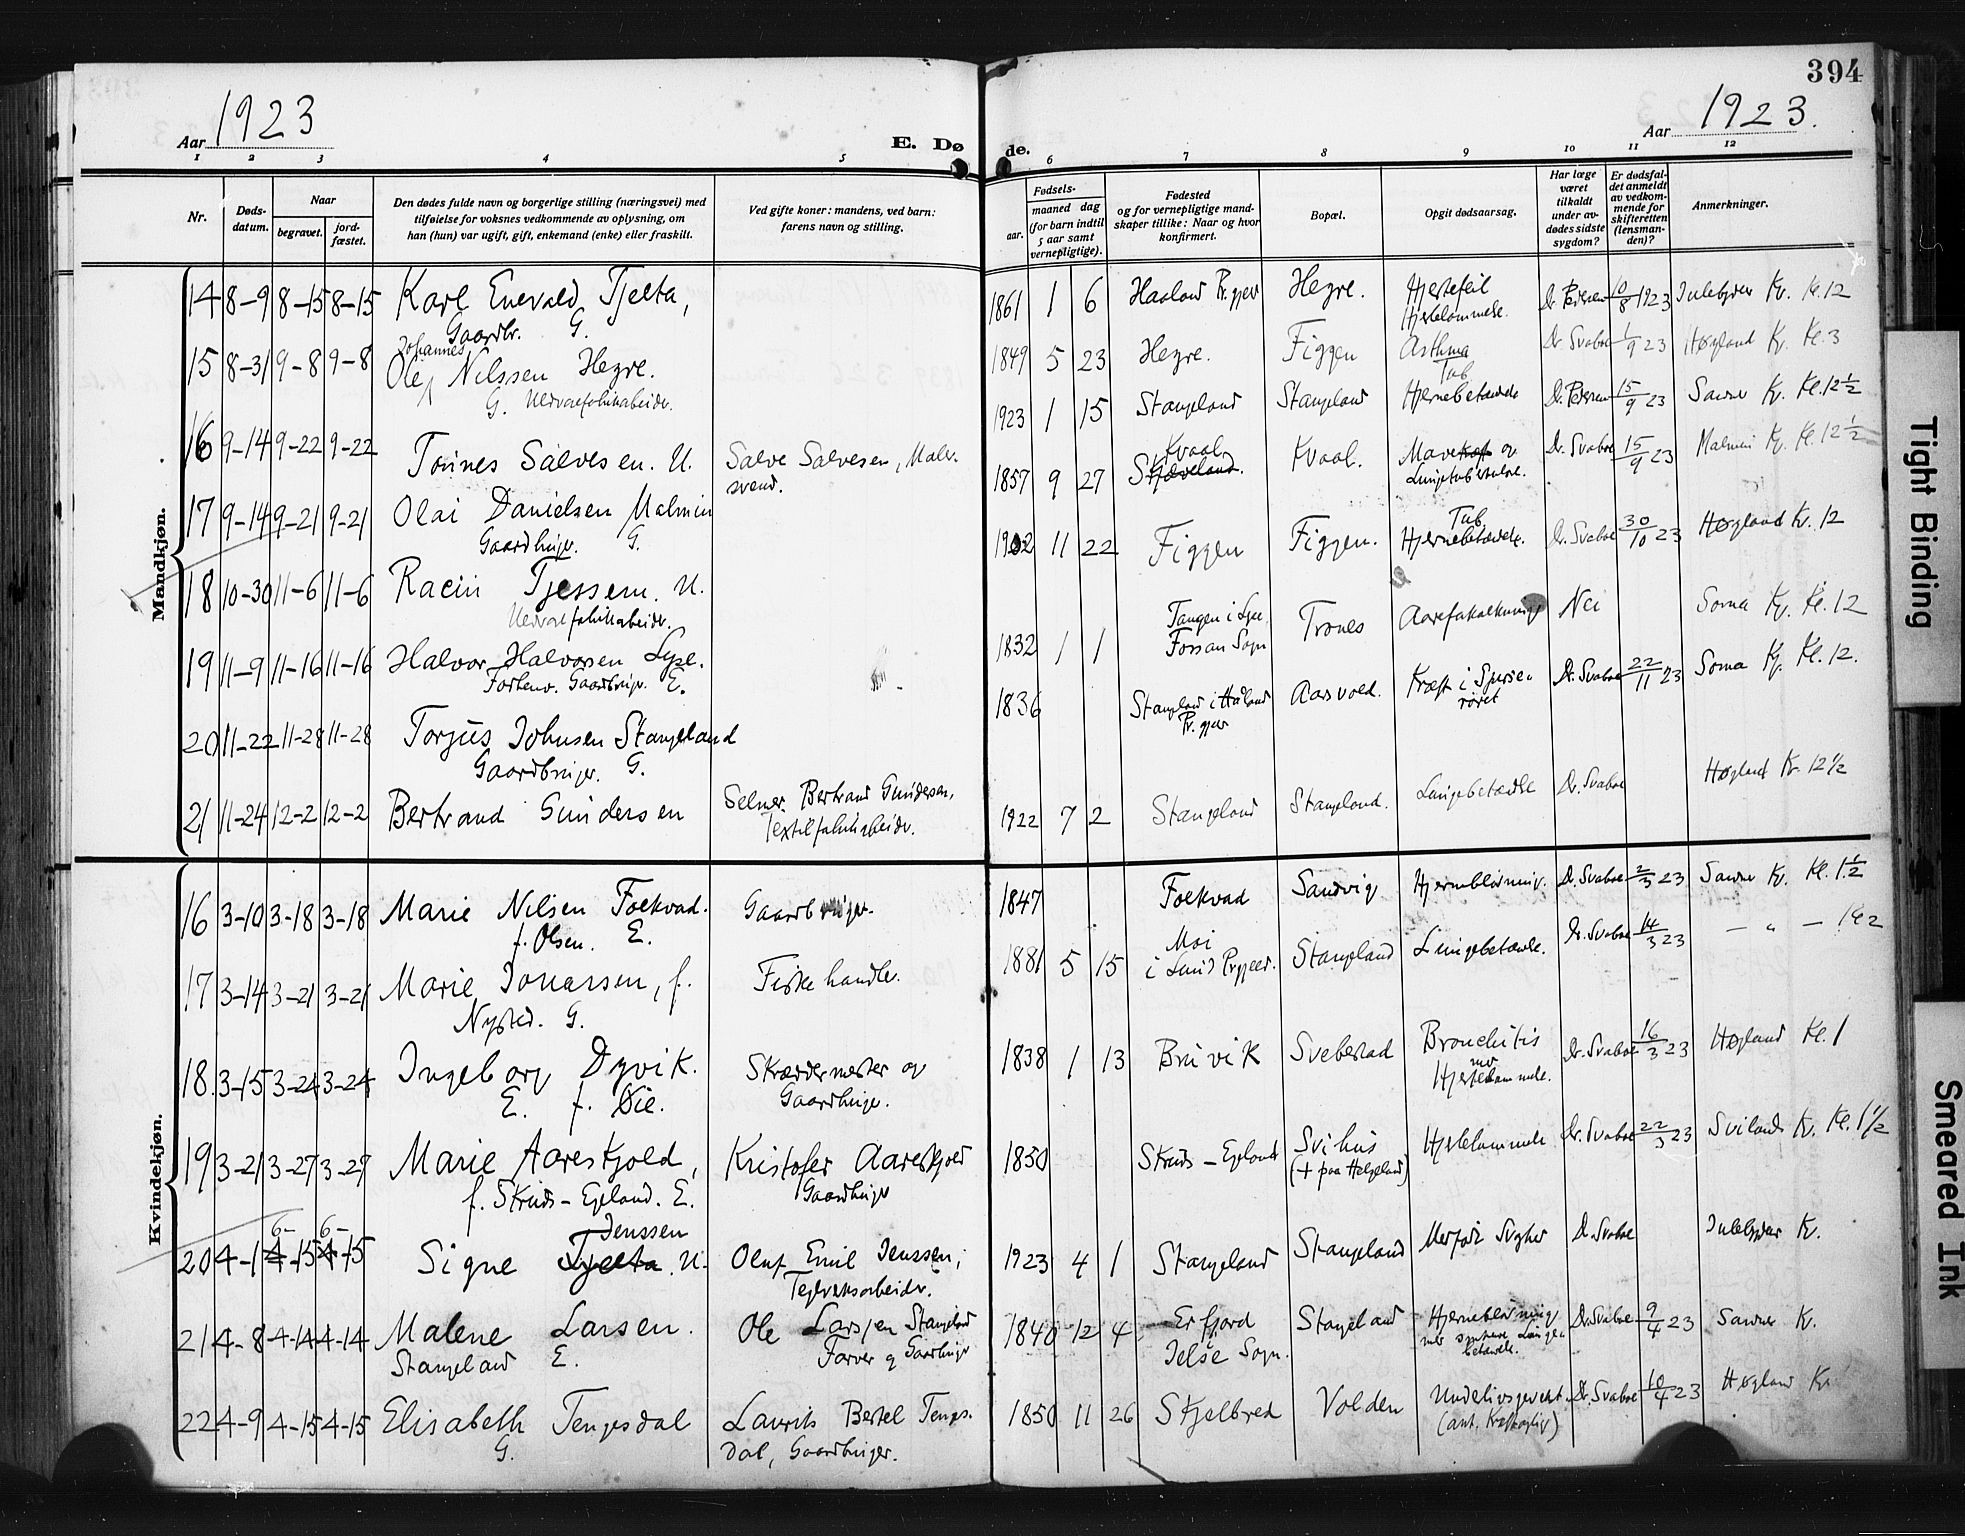 394
Aar 1923
E. Dø
de.
Aar 1923.
1 2 3 4 5 6 7 8 9 10 11 12
Nr.
Døds-
datum.
Naar
begravet.
jord-
fæstet.
Den dødes fulde navn og borgerlige stilling (næringsvei) med
tilføielse for voksnes vedkommende av oplysning, om
han (hun) var ugift, gift, enkemand (enke) eller fraskilt.
Ved gifte koner: mandens, ved barn:
farens navn og stilling.
Fødsels-
aar.
maaned dag
(for barn indtil
5 aar samt
vernepligtige).
Fødested
og for vernepligtige mand-
skaper tillike: Naar og hvor
konfirmert.
Bopæl.
Opgit dødsaarsag.
Har læge
været
tilkaldt
under av-
dødes sidste
sygdom?
Er dødsfal-
det anmeldt
av vedkom-
mende for
skifteretten
(lensman-
den)?
Anmerkninger.
Mandkjøn.
14 8-9 8-15 8-15 Karl Enevald Tjelta,
Gaardbr. G.
1861 1 6 Haaland Pr.gjeld Hegre. Hjertefeil
Hjertelammelse. Dr. Pedersen 10/8 1923 Julebygden Kr. Kl. 12
15 8-31 9-8 9-8 Johannes
Olef Nilssen Hegre.
G. Uldvarefabrikarbeider.
1849 5 23 Hegre. Figgen Asthma Dr Svaboe 1/9 23 Høyland Kr. Kl. 3
16 9-14 9-22 9-22 Tønnes Salvesen. U. Salve Salvesen, Maler-
svend.
1923 1 15 Stangeland Stangeland Tub
Hjernebetændelse Dr. Pedersen 15/9 23 Sandnes Kr. Kl. 12 1/2
17 9-14 9-21 9-21 Olai Danielsen Malmin
Gaardbruger. G.
1857 9 27 Kvaal
Skjæveland. Kvaal. Mavekræft og
Lungetuberkulose. Dr. Svaboe 15/9 23 Malmin Kr. Kl. 12 1/2
18 10-30 11-6 11-6 Racin Tjessem. U.
Uldvarefabrikarbeider.
1902 11 22 Figgen Figgen. Tub.
Hjernebetændelse. Dr. Svaboe 30/10 23 Høyland Kr. 12
19 11-9 11-16 11-16 Halvor Halvorsen Lyse.
Forhenv. Gaardbruger. E.
1832 1 1 Tangen i Lyse
Fossan Sogn Trones Aareforkalkning Nei Soma Kr. Kl. 12
20 11-22 11-28 11-28 Torjus Johnsen Stangeland
Gaardbruger. G.
1836 Stangeland i Haaland
Pr.gjeld Aasvold. Kræft i Spise-
røret Dr. Svaboe 22/11 23 Soma Kr. Kl. 12.
21 11-24 12-2 12-2 Bertrand Gundersen Selmer Bertrand Gundersen,
Textilfabrikarbeider.
1922 7 2 Stangeland Stangeland. Lungebetændelse Dr. Svaboe Høyland Kr. 12 1/2
Kvindekjøn.
16 3-10 3-18 3-18 Marie Nilsen Folkvord.
f. Olsen. E. Gaardbruger.
1847 Folkvord Sandvig Hjerneblødning. Dr. Svaboe 2/3 23 Sandnes Kr. Kl. 1 1/2
17 3-14 3-21 3-21 Marie Jonassen, f.
Nysted. G. Fiskehandler.
1881 5 15 Moi
i Lund Prgjeld. Stangeland Lungebetændelse. Dr. Svaboe 14/3 23 — " — Kl 2
18. 3-15 3-24 3-24 Ingeborg Dyvik.
E. f. Øie. Skræddermester og
Gaardbruger.
1838 1 13 Bruvik Svebestad Bronchitis
med
Hjertelammelse. Dr. Svaboe 16/3 23 Høyland Kl. 1
19 3-21 3-27 3-27 Marie Aareskjold,
f. Skruds-Egeland. E. Kristofer Aareskjold
Gaardbruger
1850 Skruds-Egeland Svihus
(+ paa Helgeland) Hjertelammelse Dr. Svaboe 22/3 23 Sviland Kr. Kl. 1 1/2
20 4-1 6-
4-15 6-
4-15 Jenssen
Signe Tjelta. U. Oluf Emil Jenssen,
Teglverksarbeider.
1923 4 1 Stangeland Stangeland Medfødt Svaghed Dr. Svaboe Julebygden Kr.
21 4-8 4-14 4-14 Malene Larsen.
Stangeland E. Ole Larsen Stangeland
Farver og Gaardbruger
1840 12 4 Erfjord
Jelse Sogn. Stangeland Hjerneblødning
med senere Lunge-
betændelse. Dr. Svaboe 9/4 23 Sandnes Kr.
22 4-9 4-15 4-15 Elisabeth Tengesdal
G. Laurits Bertel Tenges-
dal, Gaardbruger.
1850 11 26 Skjelbred Volden Underlivsgevekst.
(ant. Kræftagtig) Dr. Svaboe 10/4 23 Høyland Kr.
Tight Binding
Smeared Ink